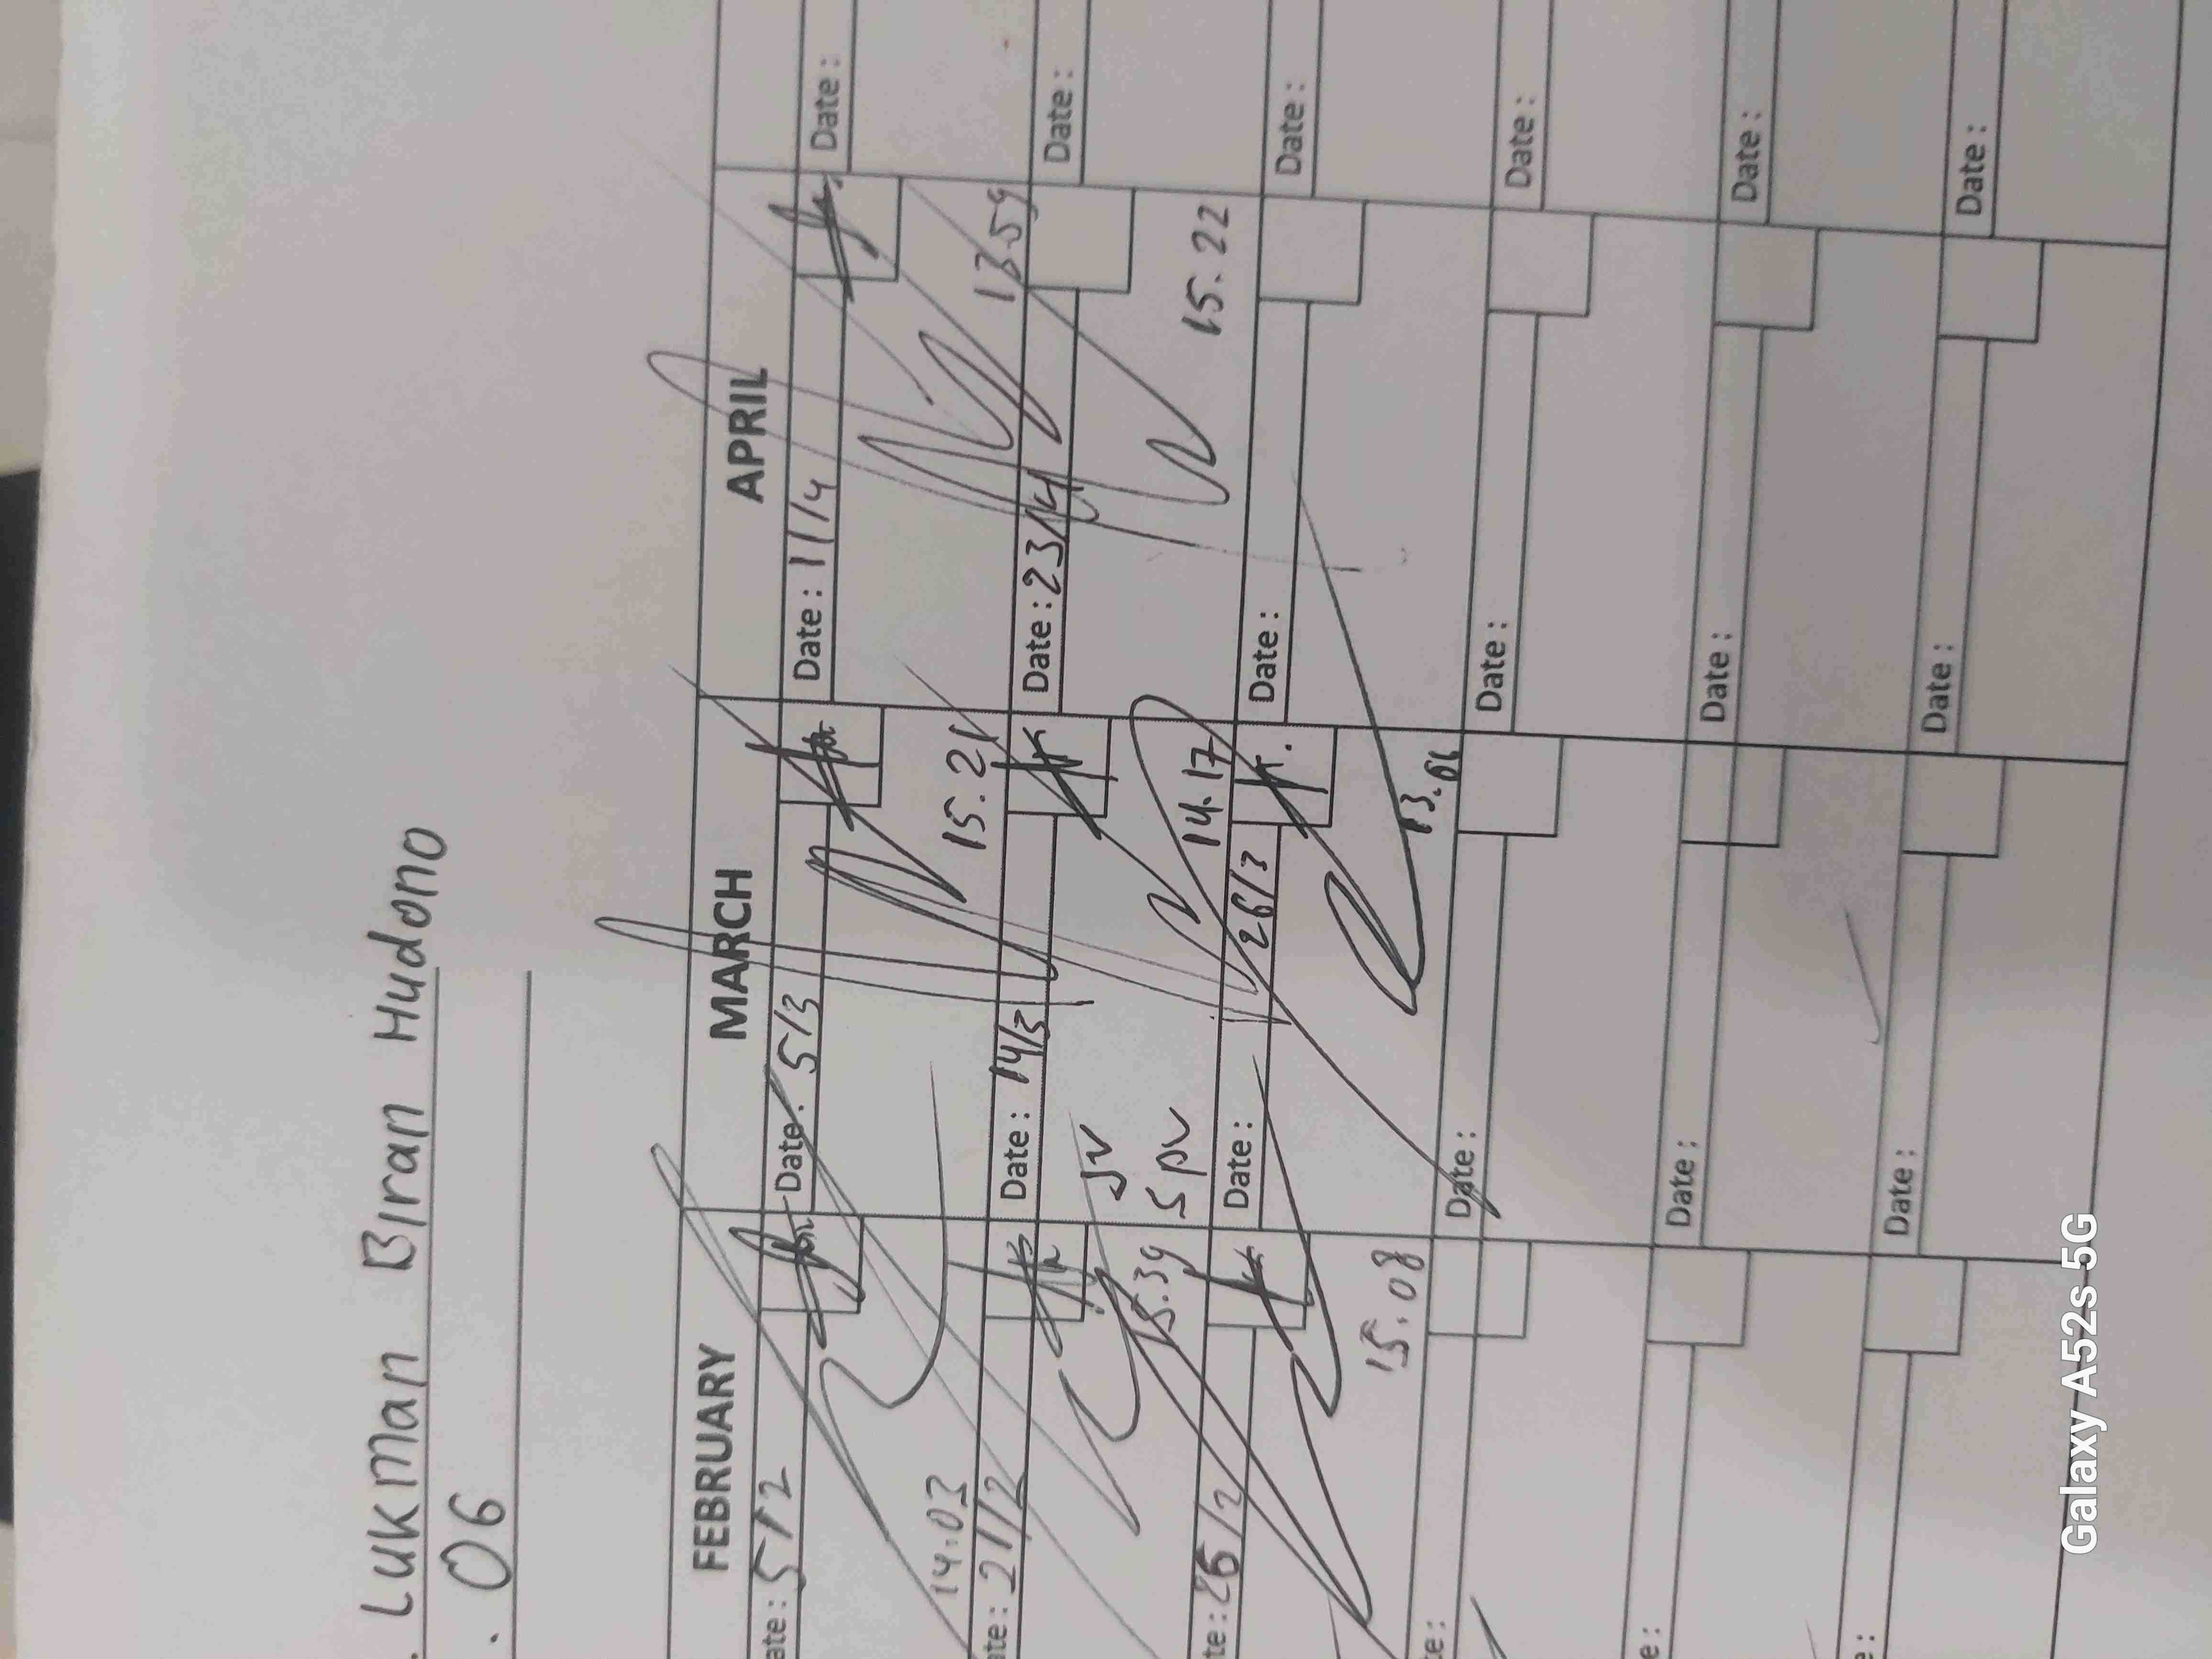 . Lukman Biran Hudono
. 06
FEBRUARY MARCH APRIL
ate: 5/2 Date: 5/3 Date: 11/4 Date:
14.03 15.21 13.59
ate: 21/2 Date: 14/3 Date: 23/4 Date:
JV
15.39 SPV 14.17 15.22
te: 26/2 Date: 26/3 Date: Date:
15.08
te: Date: Date: Date:
e: Date: Date: Date:
: Date: Date: Date:
Galaxy A52s 5G